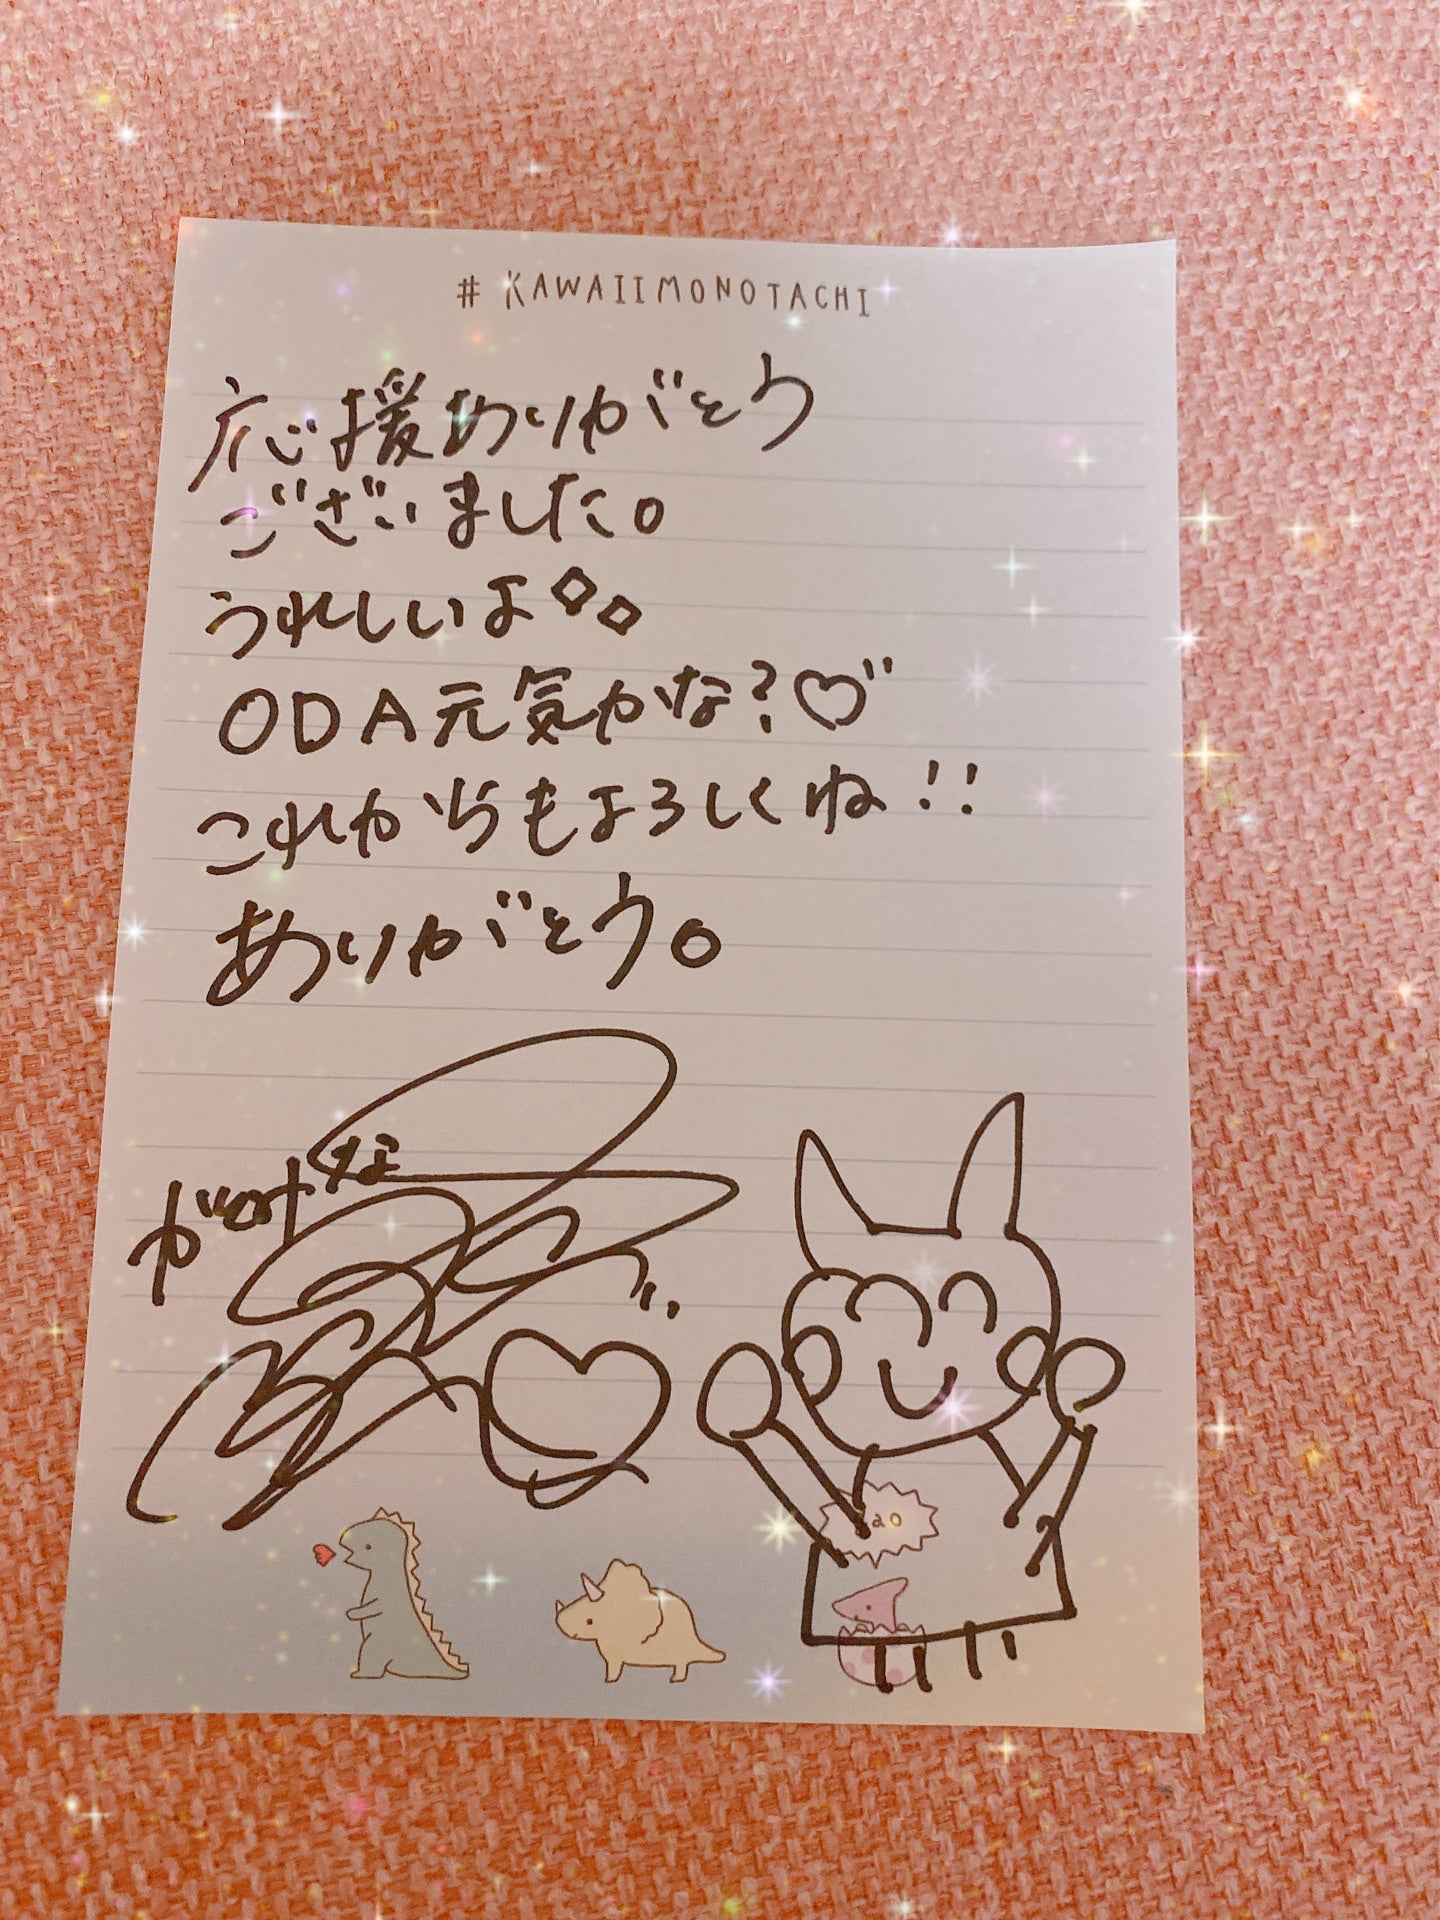 # KAWAIIMONOTACHI
応援ありがとう
ございました。
うれしいよ
ODA元気かな?♡
これからもよろしくね!!
ありがとう。